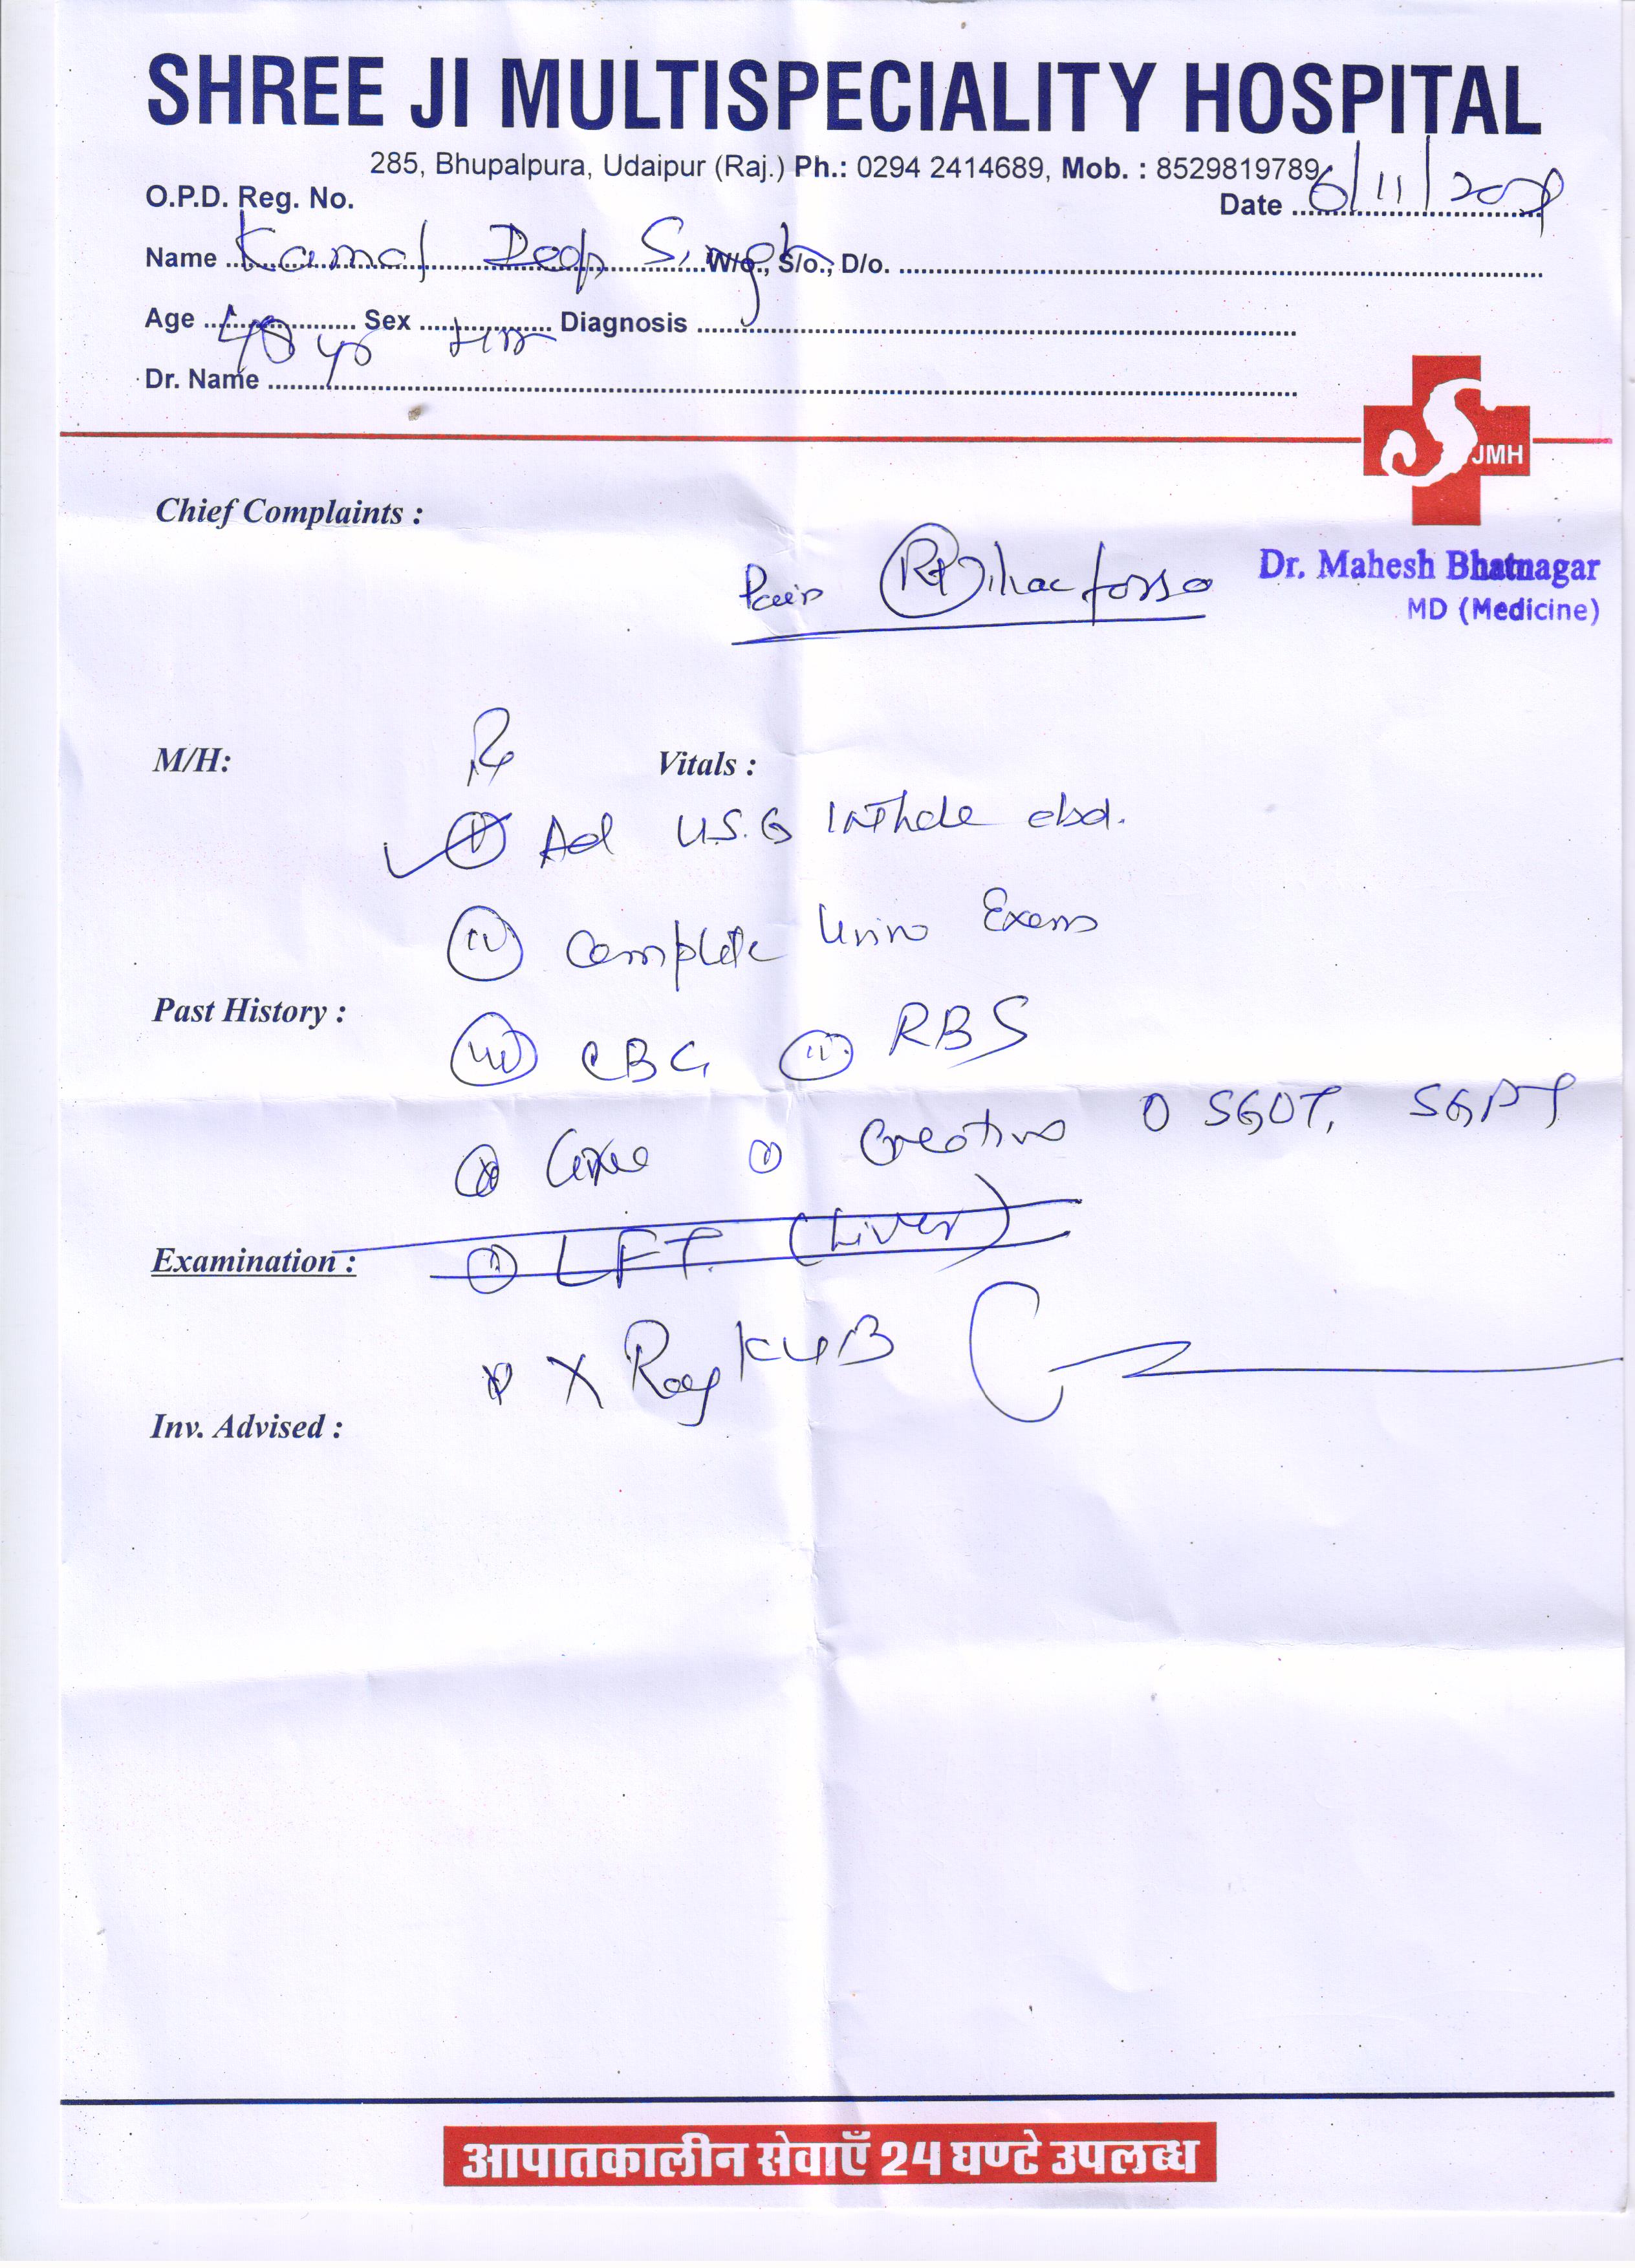 SHREE JI MULTISPECIALITY HOSPITAL
285, Bhupalpura, Udaipur (Raj.) Ph.: 0294 2414689, Mob. : 8529819789
O.P.D. Reg. No. Date 6/11/
Name Kamal Deep Singh W/o., S/o., D/o.
Age yrs Sex Diagnosis
Dr. Name
JMH
Chief Complaints :
Pain Rt iliac fossa
Dr. Mahesh Bhatnagar
MD (Medicine)
M/H: Rx Vitals :
Ad U.S.G Whole abd.
Complete Urine Exam
Past History :
CBC RBS
Creatine SGOT, SGPT
Examination : LFT. (Liver)
X Ray KUB
Inv. Advised :
आपातकालीन सेवाएँ 24 घण्टे उपलब्ध